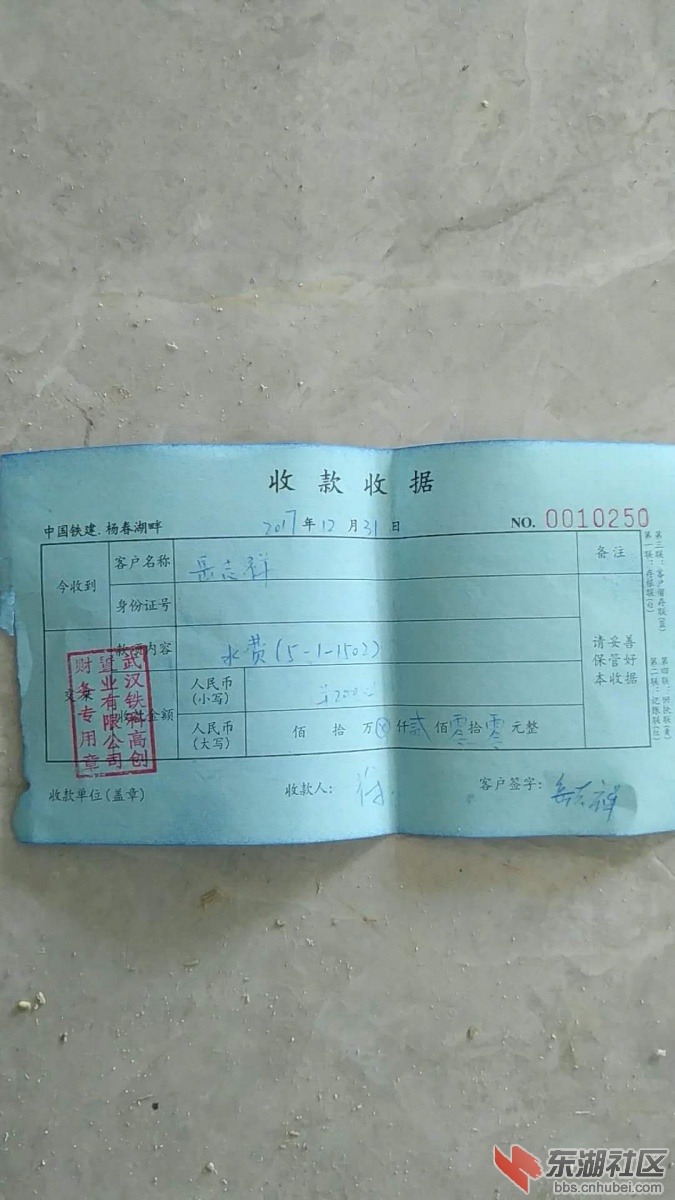 收款收据
中国铁建.杨春湖畔 2017年12月31日 NO. 0010250
今收到 客户名称 岳志祥 备注
身份证号
款项内容 水费(5-1-1502)
收款金额 人民币(小写) ¥200.00
人民币(大写) 佰 拾 万 ⊗ 仟 贰 佰 零 拾 零 元整
请妥善
保管好
本收据
第一联：存根联(白)
第二联：记账联(红)
第三联：客户留存联(蓝)
武汉铁科高创
置业有限公司
财务专用章
收款单位(盖章) 收款人： 客户签字：岳志祥
东湖社区
bbs.cnhubei.com